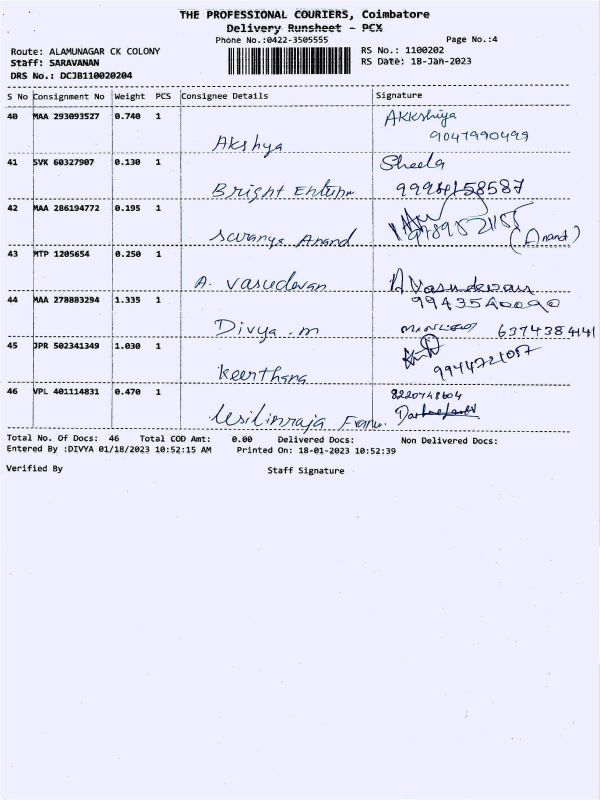 THE PROFESSIONAL COURIERS, Coimbatore
Delivery Runsheet - PCX
Phone No.:0422-3505555
Page No.:4
Route: ALAMUNAGAR CK COLONY
RS No.: 1100202
Staff: SARAVANAN
RS Date: 18-Jan-2023
DRS No.: DCJB110020204
S No Consignment No Weight PCS Consignee Details Signature
40 MAA 293093527 0.740 1 Akkshiya
9047990499
Akshya
41 SVK 60327907 0.130 1 Sheela
Bright
42 MAA 286194772 0.195 1
Saranya Anand (Anand)
43 MTP 1205654 0.250 1
A. Vasudevan A Vasudevan
44 MAA 278883294 1.335 1
Divya .m 6374384141
45 JPR 502341349 1.030 1
9944721087
Keerthana
46 VPL 401114831 0.470 1 8220748604
Total No. Of Docs: 46 Total COD Amt: 0.00 Delivered Docs: Non Delivered Docs:
Entered By :DIVYA 01/18/2023 10:52:15 AM Printed On: 18-01-2023 10:52:39
Verified By Staff Signature